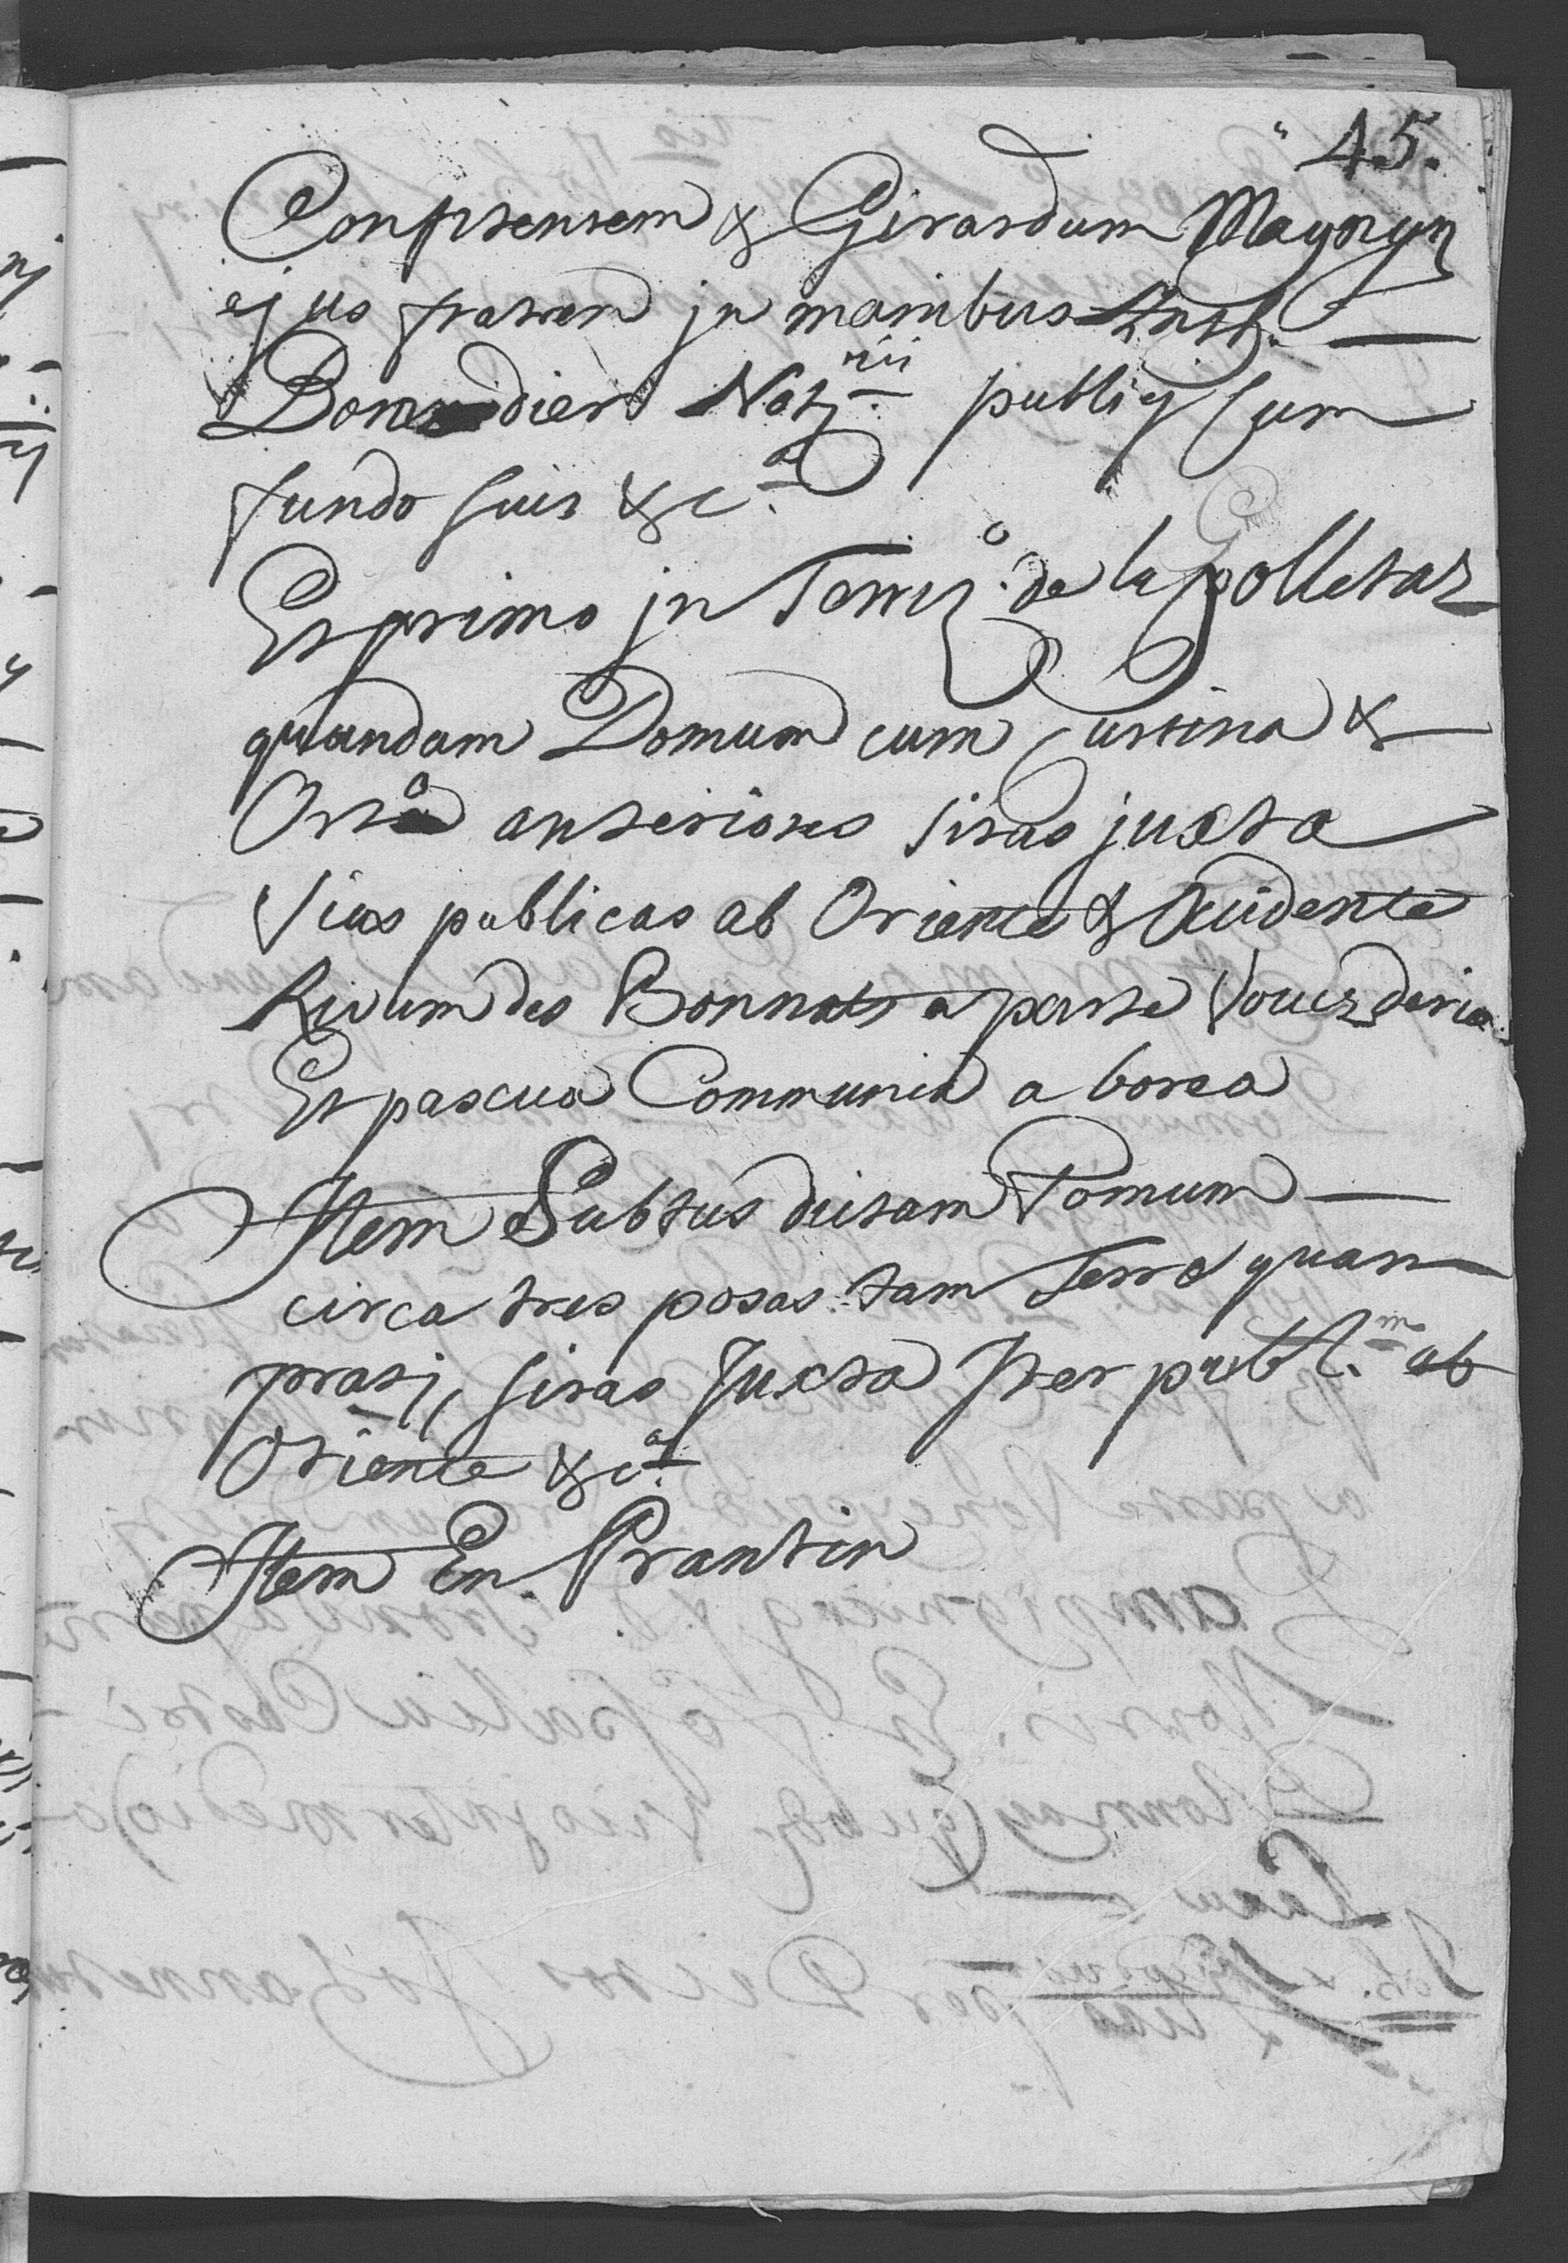 45.
Confitentem & Girardum Mayoryn
ejus fratrem jn manibus
Not.rii publicj Cum
fundo suis &c.a
Et primo jn Terri.o de la Golletaz
quandam Domum cum Curtina &
Orto anteriores sitas juxta
Vias publicas ab Oriente & Occidente
Rivum des Bonnats a parte
Et pascua Communia a borea
Item Subtus dictam Domum
circa tres posas tam Terre quam
pratj, sitas Juxta Iter publ.m ab
Oriente &c.a
Item En Prantin